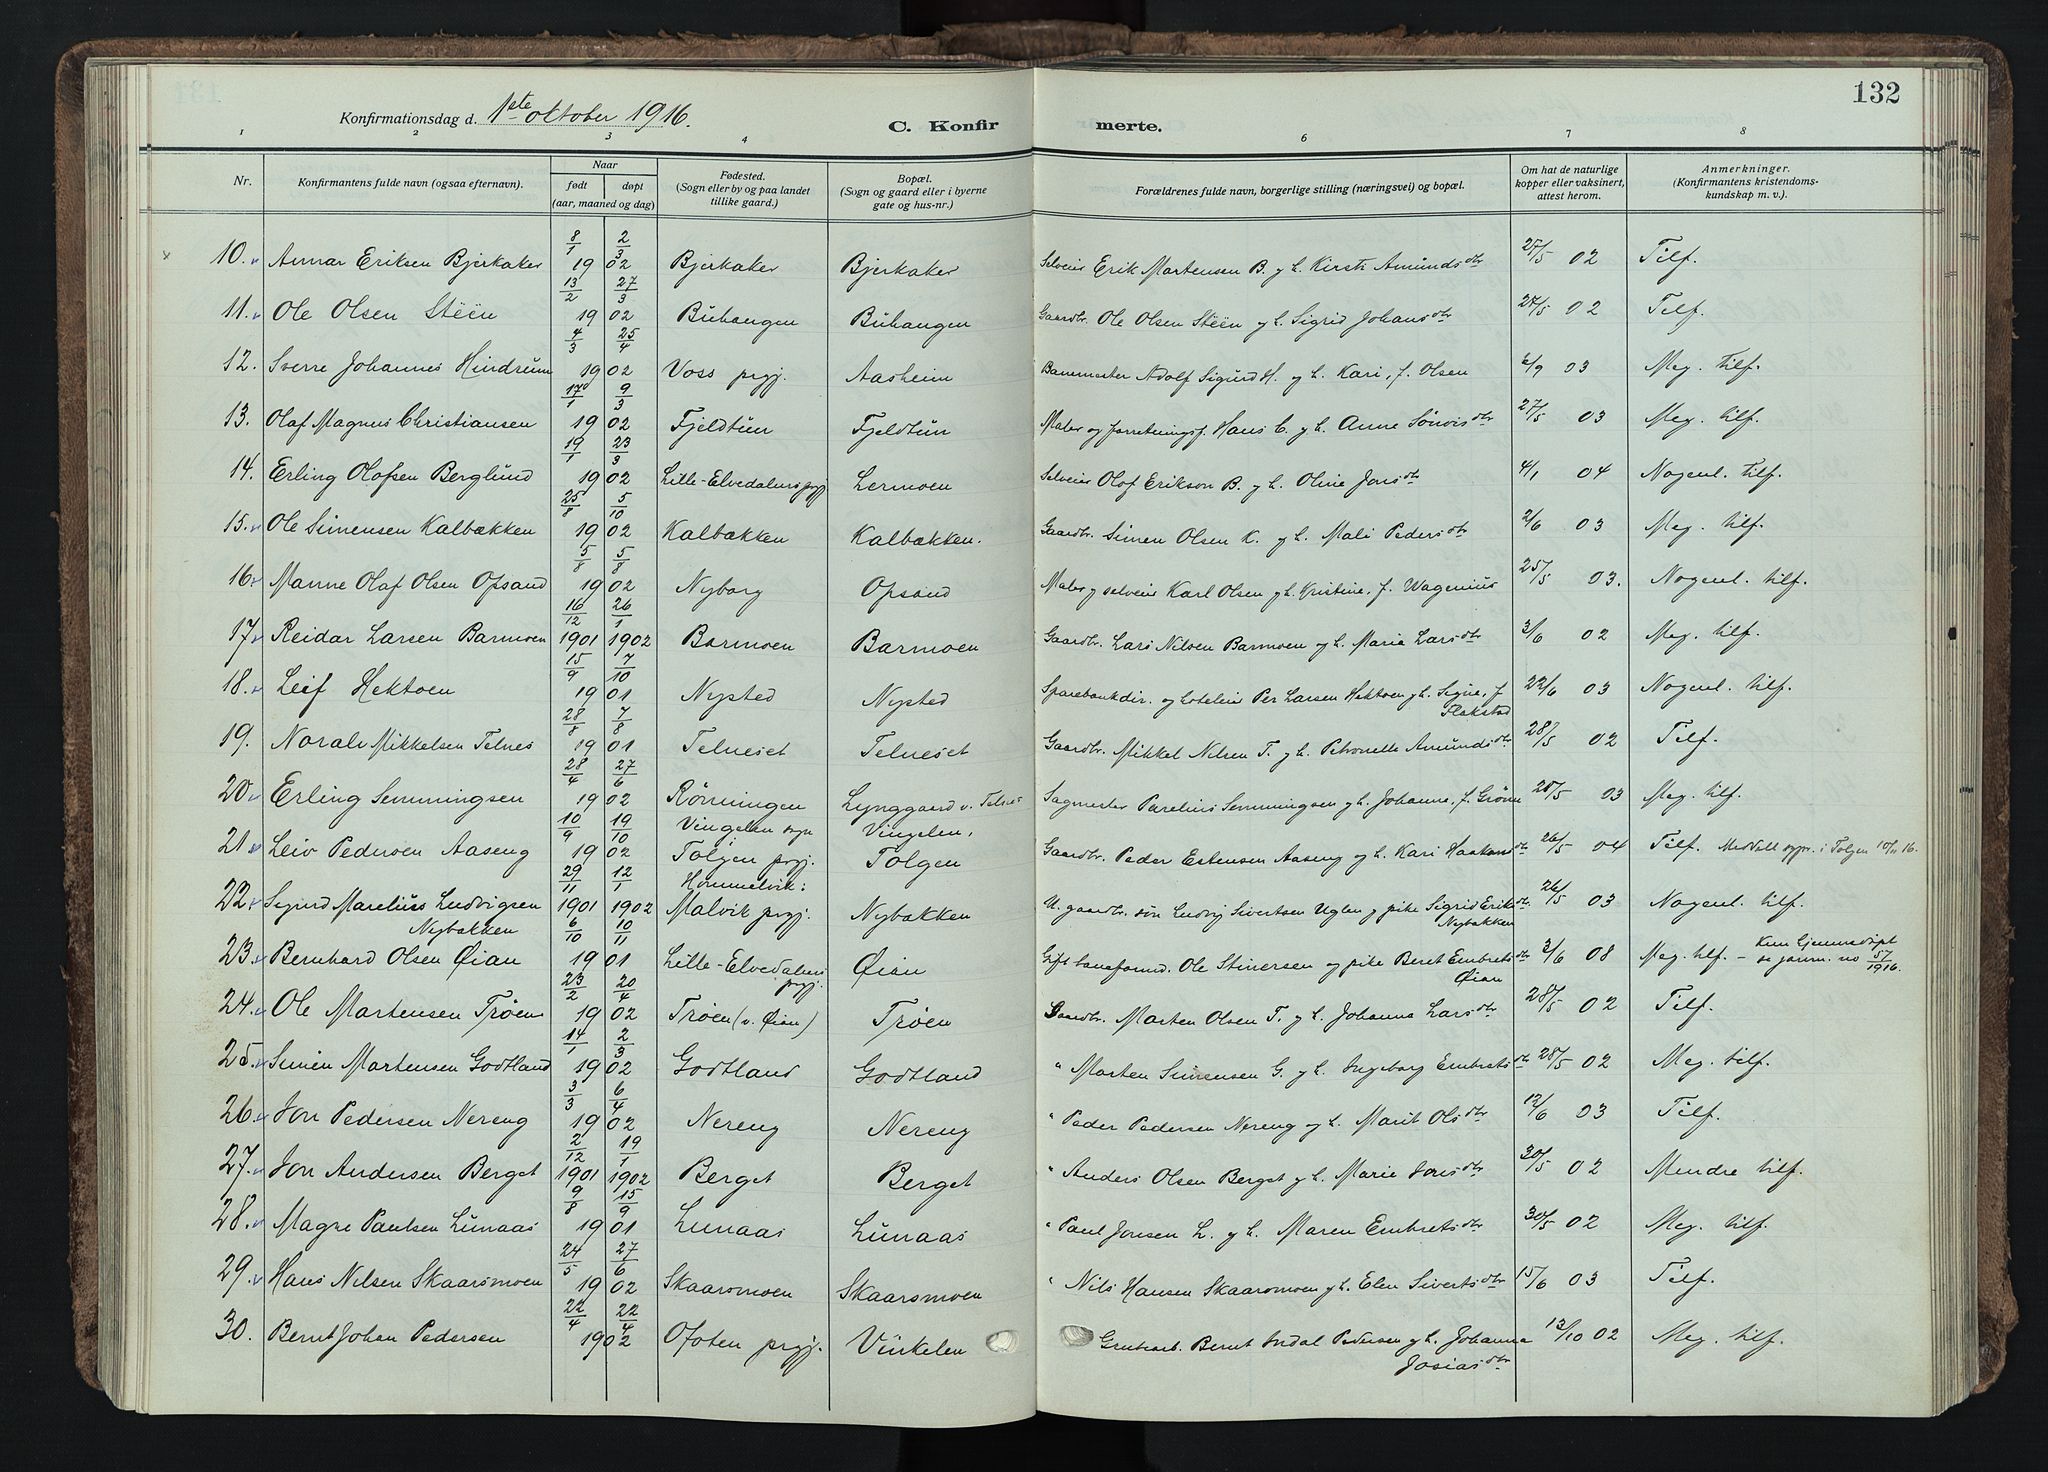 132
Konfirmationsdag d. 1ste oktober 1916.
C. Konfirmerte.
1 2 3 4 6 7 8
Nr.
Konfirmantens fulde navn (ogsaa efternavn).
Naar
født døpt
(aar, maaned og dag)
Fødested.
(Sogn eller by og paa landet
tillike gaard.)
Bopæl.
(Sogn og gaard eller i byerne
gate og hus-nr.)
Forældrenes fulde navn, borgerlige stilling (næringsvei) og bopæl.
Om hat de naturlige
kopper eller vaksinert,
attest herom.
Anmerkninger.
(Konfirmantens kristendoms-
kundskap m. v.).
10. Annar Eriksen Bjerkaker 8/1 2/3 1902 Bjerkaker Bjerkaker Selveier Erik Martensen B. og h. Kirsti Amundsdtr 27/5 02 Tilf.
11. Ole Olsen Stëën 13/2 27/3 1902 Buhaugen Buhaugen Gaardbr. Ole Olsen Stëën og h. Sigrid Johansdtr 27/5 02 Tilf.
12. Sverre Johannes Hindrum 4/3 25/4 1902 Voss prgj. Aasheim Banemester Adolf Sigurd H. og h. Kari, f. Olsen 6/9 03 Meg. tilf.
13. Olaf Magnus Christiansen 17/1 9/3 1902 Fjeldtun Fjeldtun Maler og forretningsf. Hans C. og h. Anne Sønvisdtr 27/5 03 Meg. tilf.
14. Erling Olofsen Berglund 19/1 23/3 1902 Lille-Elvedalens prgj Lermoen Selveier Olof Erikson B. og h. Oline Jonsdtr 4/1 04 Nogenl. tilf.
15. Ole Simensen Kalbækken 25/8 5/10 1902 Kalbækken Kalbækken. Gaardbr. Simen Olsen K. og h. Mali Pedersdtr 2/6 03 Meg. tilf.
16. Manne Olaf Olsen Opsand 5/8 5/8 1902 Nyborg Opsand Maler og selveier Karl Olsen og h. Kristine, f. Wagenius 25/5 03. Nogenl. tilf.
17. Reidar Larsen Barmoen 16/12 1901 26/1 1902 Barmoen Barmoen Gaardbr. Lars Nilsen Barmoen og h. Marie Larsdtr 3/6 02 Meg. tilf.
18. Leif Hektoen 15/9 7/10 1901 Nysted Nysted Sparebankdir. og hoteleier Per Larsen Hektoen og h. Signe, f. Flakstad 22/6 03 Nogenl. tilf.
19. Norali Mikkelsen Telnes 28/8 7/8 1901 Telneset Telneset Gaardbr. Mikkel Nilsen T. og h. Petronelle Amundsdtr 28/5 02 Tilf.
20. Erling Semmingsen 28/4 27/6 1902 Rønningen Lynggaard v. Telnes Sagmester Parelius Semmingsen og h. Johanne, f. Grønn 28/5 03 Meg. tilf.
21. Leiv Pedersen Aaseng 10/9 19/10 1902 Vingelen sogn Tolgen prgj. Vingelen, Tolgen Gaardbr. Peder Estensen Aaseng og h. Kari Haakonsdtr 26/5 04 Tilf. Meddelt sogpr. i Tolgen 10/11 16.
22. Sigurd Marelius Ludvigsen Nybakken 29/11 1901 12/1 1902 Hommelvik: Malvik prgj. Nybakken U. gaardbr. søn Ludvig Sivertsen Uglen og pike Sigrid Eriksdtr. Nybakken 26/5 03 Nogenl. tilf.
23. Bernhard Olsen Øian 6/10 10/11 1901 Lille-Elvedalens prgj. Øian Gift baneformd. Ole Stinersen og pike Beret Embretsdtr Øian 3/6 08 Meg. tilf. – Kun hjemmedøpt se journ. no 57/1916.
24. Ole Martensen Trøen 23/2 20/4 1902 Trøen (v. Øian) Trøen Gaardbr. Morten Olsen T. og h. Johanna Larsdtr 28/5 02 Tilf.
25. Simen Martensen Godtland 14/1 2/3 1902 Godtland Godtland " Morten Simensen G. og h. Ingeborg Embretsdtr 28/5 02 Meg. tilf.
26. Jon Pedersen Nereng 3/3 6/4 1902 Nereng Nereng " Peder Pedersen Nereng og h. Marit Olsdtr 12/6 03 Tilf.
27. Jon Andersen Berget 2/12 1901 19/1 1902 Berget Berget " Anders Olsen Berget og h. Marie Jonsdtr 30/5 02 Mindre tilf.
28. Magne Paulsen Lunaas 9/8 15/9 1901 Lunaas Lunaas " Paul Jonsen L. og h. Maren Embretsdtr 30/5 02 Meg. tilf.
29. Hans Nilsen Skaarsmoen 24/5 27/6 1902 Skaarsmoen Skaarsmoen " Nils Hansen Skaarsmoen og h. Elen Sivertsdtr 15/6 03 Tilf.
30. Bernt Johan Pedersen 22/4 22/4 1902 Ofoten prgj. Vinkelen Grubearb. Bernt Indal Pedersen og h. Johanna Josiasdtr 13/10 02 Meg. tilf.